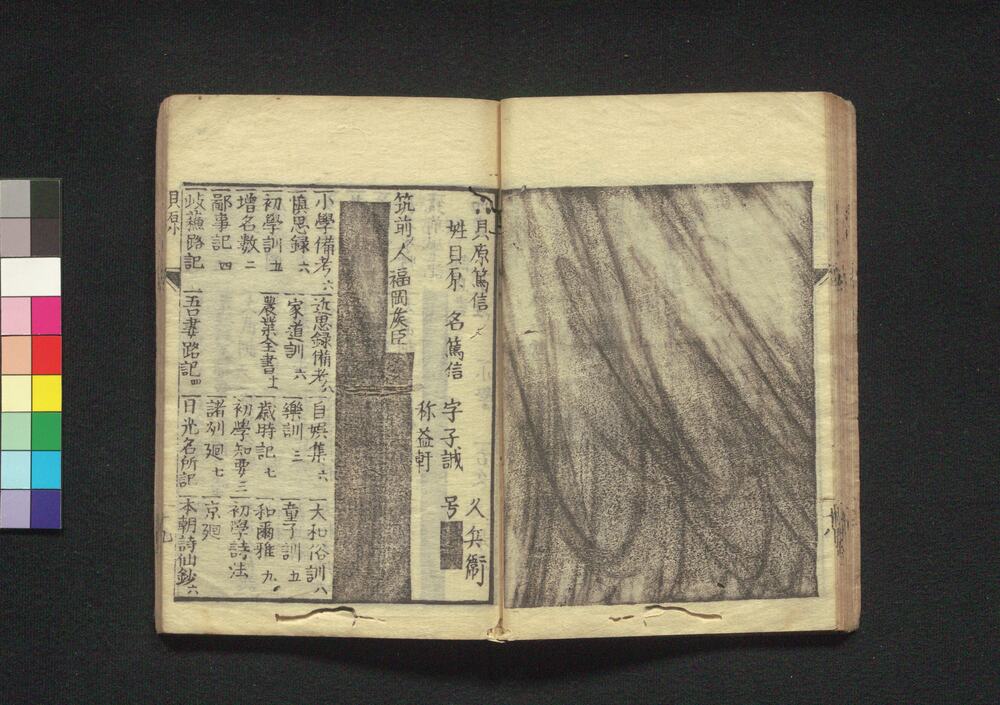 貝原篤信
久兵衛
姓貝原 名篤信 字子誠 号
称益軒
筑前人 福岡侯臣
小學備考六 近思録備考八 自娯集六 大和俗訓八
慎思録六 家道訓六 樂訓三 童子訓五
初學訓五 農業全書十一 歳時記七 和爾雅九
増名数二 初學知要三 初學詩法
鄙事記四 諸列廻七 京廻
岐蘓路記 吾妻路記四 日光名所記 本朝詩仙鈔六
貝原